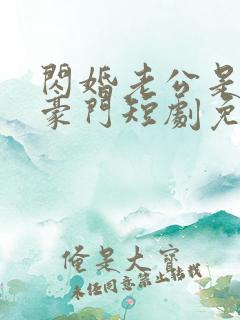 閃婚老公是
豪門短劇免
俺是大寶
未經同意禁止轉載